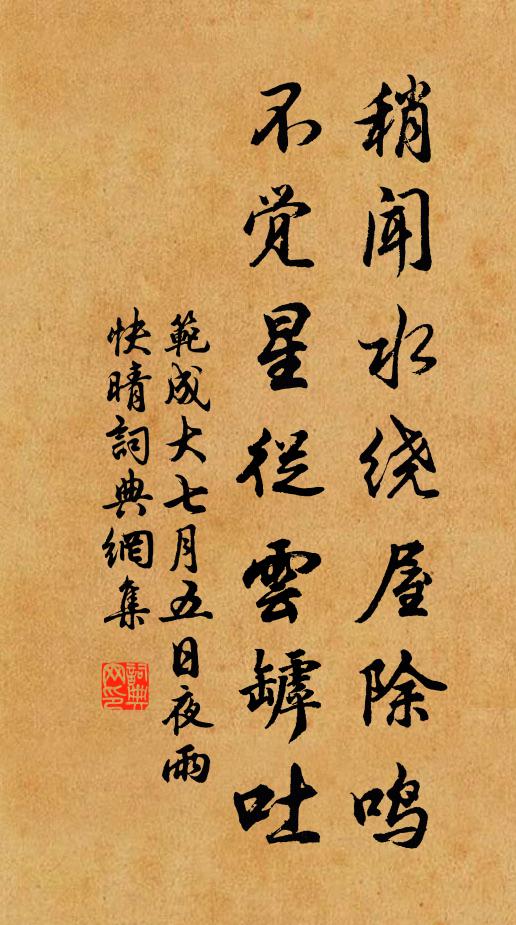 稍闻水绕屋除鸣
不觉星從雲罅吐
範成大七月五日夜雨
快晴詞典網集
詞典网印